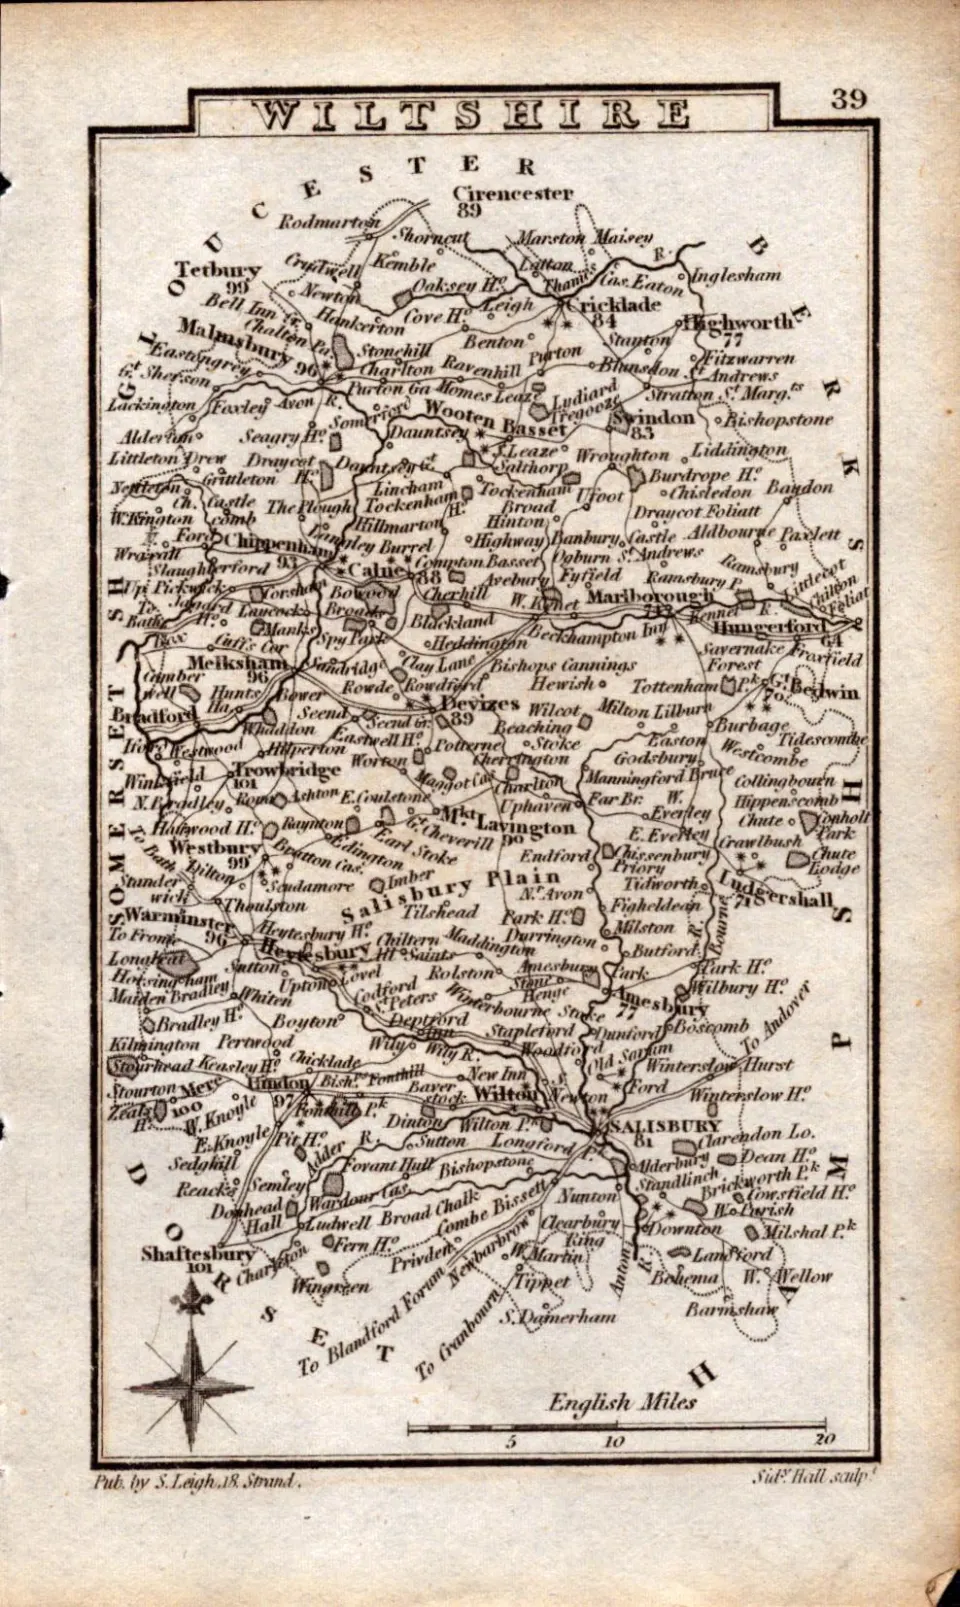 39
WILTSHIRE
GLOUCESTER
Cirencester
89
Rodmarton
Shorncut
Marston Maisey
BERKSHIRE
Tetbury
99
Crudwell
Kemble
Latton
Thames
R.
Cas. Eaton
Inglesham
Newton
Oaksey Ho.
Leigh
Cricklade
84
Bell Inn
Hankerton
Cove Ho.
Highworth
77
Chalton Pa.
Malmsbury 96
Stonehill
Benton
Purton
Stanton
Fitzwarren
Eastongrey
Charlton
Ravenhill
Blunsdon St. Andrews
Gt. Sherson
Purton Ga
Homes Leaze
Stratton St. Marg.ts
Lackington
Foxley
Avon R.
Somerford
Wooten Basset
Ludiard Tregooze
Swindon
83
Bishopstone
Alderton
Seagry Ho.
Dauntsey
Littleton Drew
Draycot Ho.
Dauntsey Gt.
J. Leaze
Salthorp
Wroughton
Liddington
Nettleton
Grittleton
Lincham
Tockenham
Burdrope Ho.
Ch. Castle comb
The Plough
Tockenham Ho.
Ufoot
Chisledon
Baydon
W. Kington
Broad Hinton
Draycot Foliatt
N. Wraxall
Ford
Hillmarton
Chippenham
93
Langley Burrel
Highway
Banbury Castle
Aldbourne
Paxlett
Slaughterford
Compton Basset
Ogburn St. Andrews
Calne
88
Up. Pickwick
Corsham
Bowood
Cherhill
Avebury
Fyfield
Ramsbury P.
Ramsbury
Littlecot
Chilton Foliat
To Bath
Jaggard Ho.
Laycock
Broads
Blackland
W. Kenet
Marlborough
Kennet R.
Hungerford
64
Box
Cuffs Cor
Manks
Spy Park
Heddington
Beckhampton Inn
Savernake Forest
Froxfield
Melksham
96
Sandridge
Clay Lane
Bishops Cannings
Cumberwell
Hunts Ha.
Bower
Rowde
Rowdford
Hewish
Tottenham Pk
Gt. Bedwin
70
Bradford
Seend
Devizes
89
Wilcot
Milton Lilburn
Burbage
Whaddon
Seend Gr.
Beaching Stoke
Iford
Westwood
Hilperton
Eastwell Ho.
Potterne
Easton
Tidescombe
Westcombe
Winkfield
Trowbridge
101
Worton
Cherrington
Godsbury
N. Bradley
Ashton
Maggot Cas.
Charlton
Manningford Bruce
Collingbourn
Road
E. Coulstone
Uphaven
Far Br.
W. Everley
Hippenscomb
Chute
Conholt Park
Haywood Ho.
Raynton
Mkt. Lavington
90
E. Everley
To Bath
Westbury
99
Edington
Earl Stoke
Gt. Cheverill
Endford
Chissenbury Priory
Crawlbush
Chute Lodge
Dilton
Bratton Cas.
Imber
Salisbury Plain
Tidworth
Ludgershall
71
Standerwick
Scudamore
Nr. Avon
Figheldean
Thoulston
Tilshead
Park Ho.
Milston
Bourne R.
Warminster
96
Heytesbury Ho.
Chiltern
Maddington
Durrington
Butford
To Frome
Heytesbury
All Saints
Longleat
Sutton
Lovel
Rolston
Amesbury Park
Park Ho.
Horsingham
Upton
Stone Henge
Wilbury Ho.
Maiden Bradley
Whiten
Codford St. Peters
Winterbourne Stoke
Amesbury
77
Bradley Ho.
Boyton
Deptford Inn
Stapleford
Dunford
Boscomb
To Andover
Kilmington
Pertwood
Wily
Wily R.
Woodford
Old Sarum
Stourhead
Keasley Ho.
Chicklade
Winterslow Hurst
Stourton
Mere
100
Hindon
97
Bishps. Fonthill
New Inn
Ford
Zeals Ho.
W. Knoyle
Fonthill Pk
Baverstock
Wilton
Newton
Winterslow Ho.
E. Knoyle
Dinton
Wilton Pk
SALISBURY
81
Clarendon Lo.
Sedghill
Pit Ho.
Adder R.
Sutton
Longford
Alderbury
Dean Ho.
Reacks
Semley
Fovant Hutt
Bishopstone
Standlinch
Brickworth Pk
Donhead Hall
Wardour Cas.
Broad Chalk
Nunton
Cowsfield Ho.
W. Parish
Ludwell
Combe Bissett
Clearbury Ring
Downton
Milshal Pk
Shaftesbury
101
Fern Ho.
Privden
Newbarbrow
W. Martin
Landford
Charlton
Wingreen
Tippet
Anton R.
Bohema
W. Wellow
S. Damerham
Barmshaw
To Blandford Forum
To Cranbourn
SOMERSETSH
DORSET
HAMPSH
English Miles
5 10 20
Pub. by S. Leigh, 18. Strand.
Sidy. Hall sculpt.